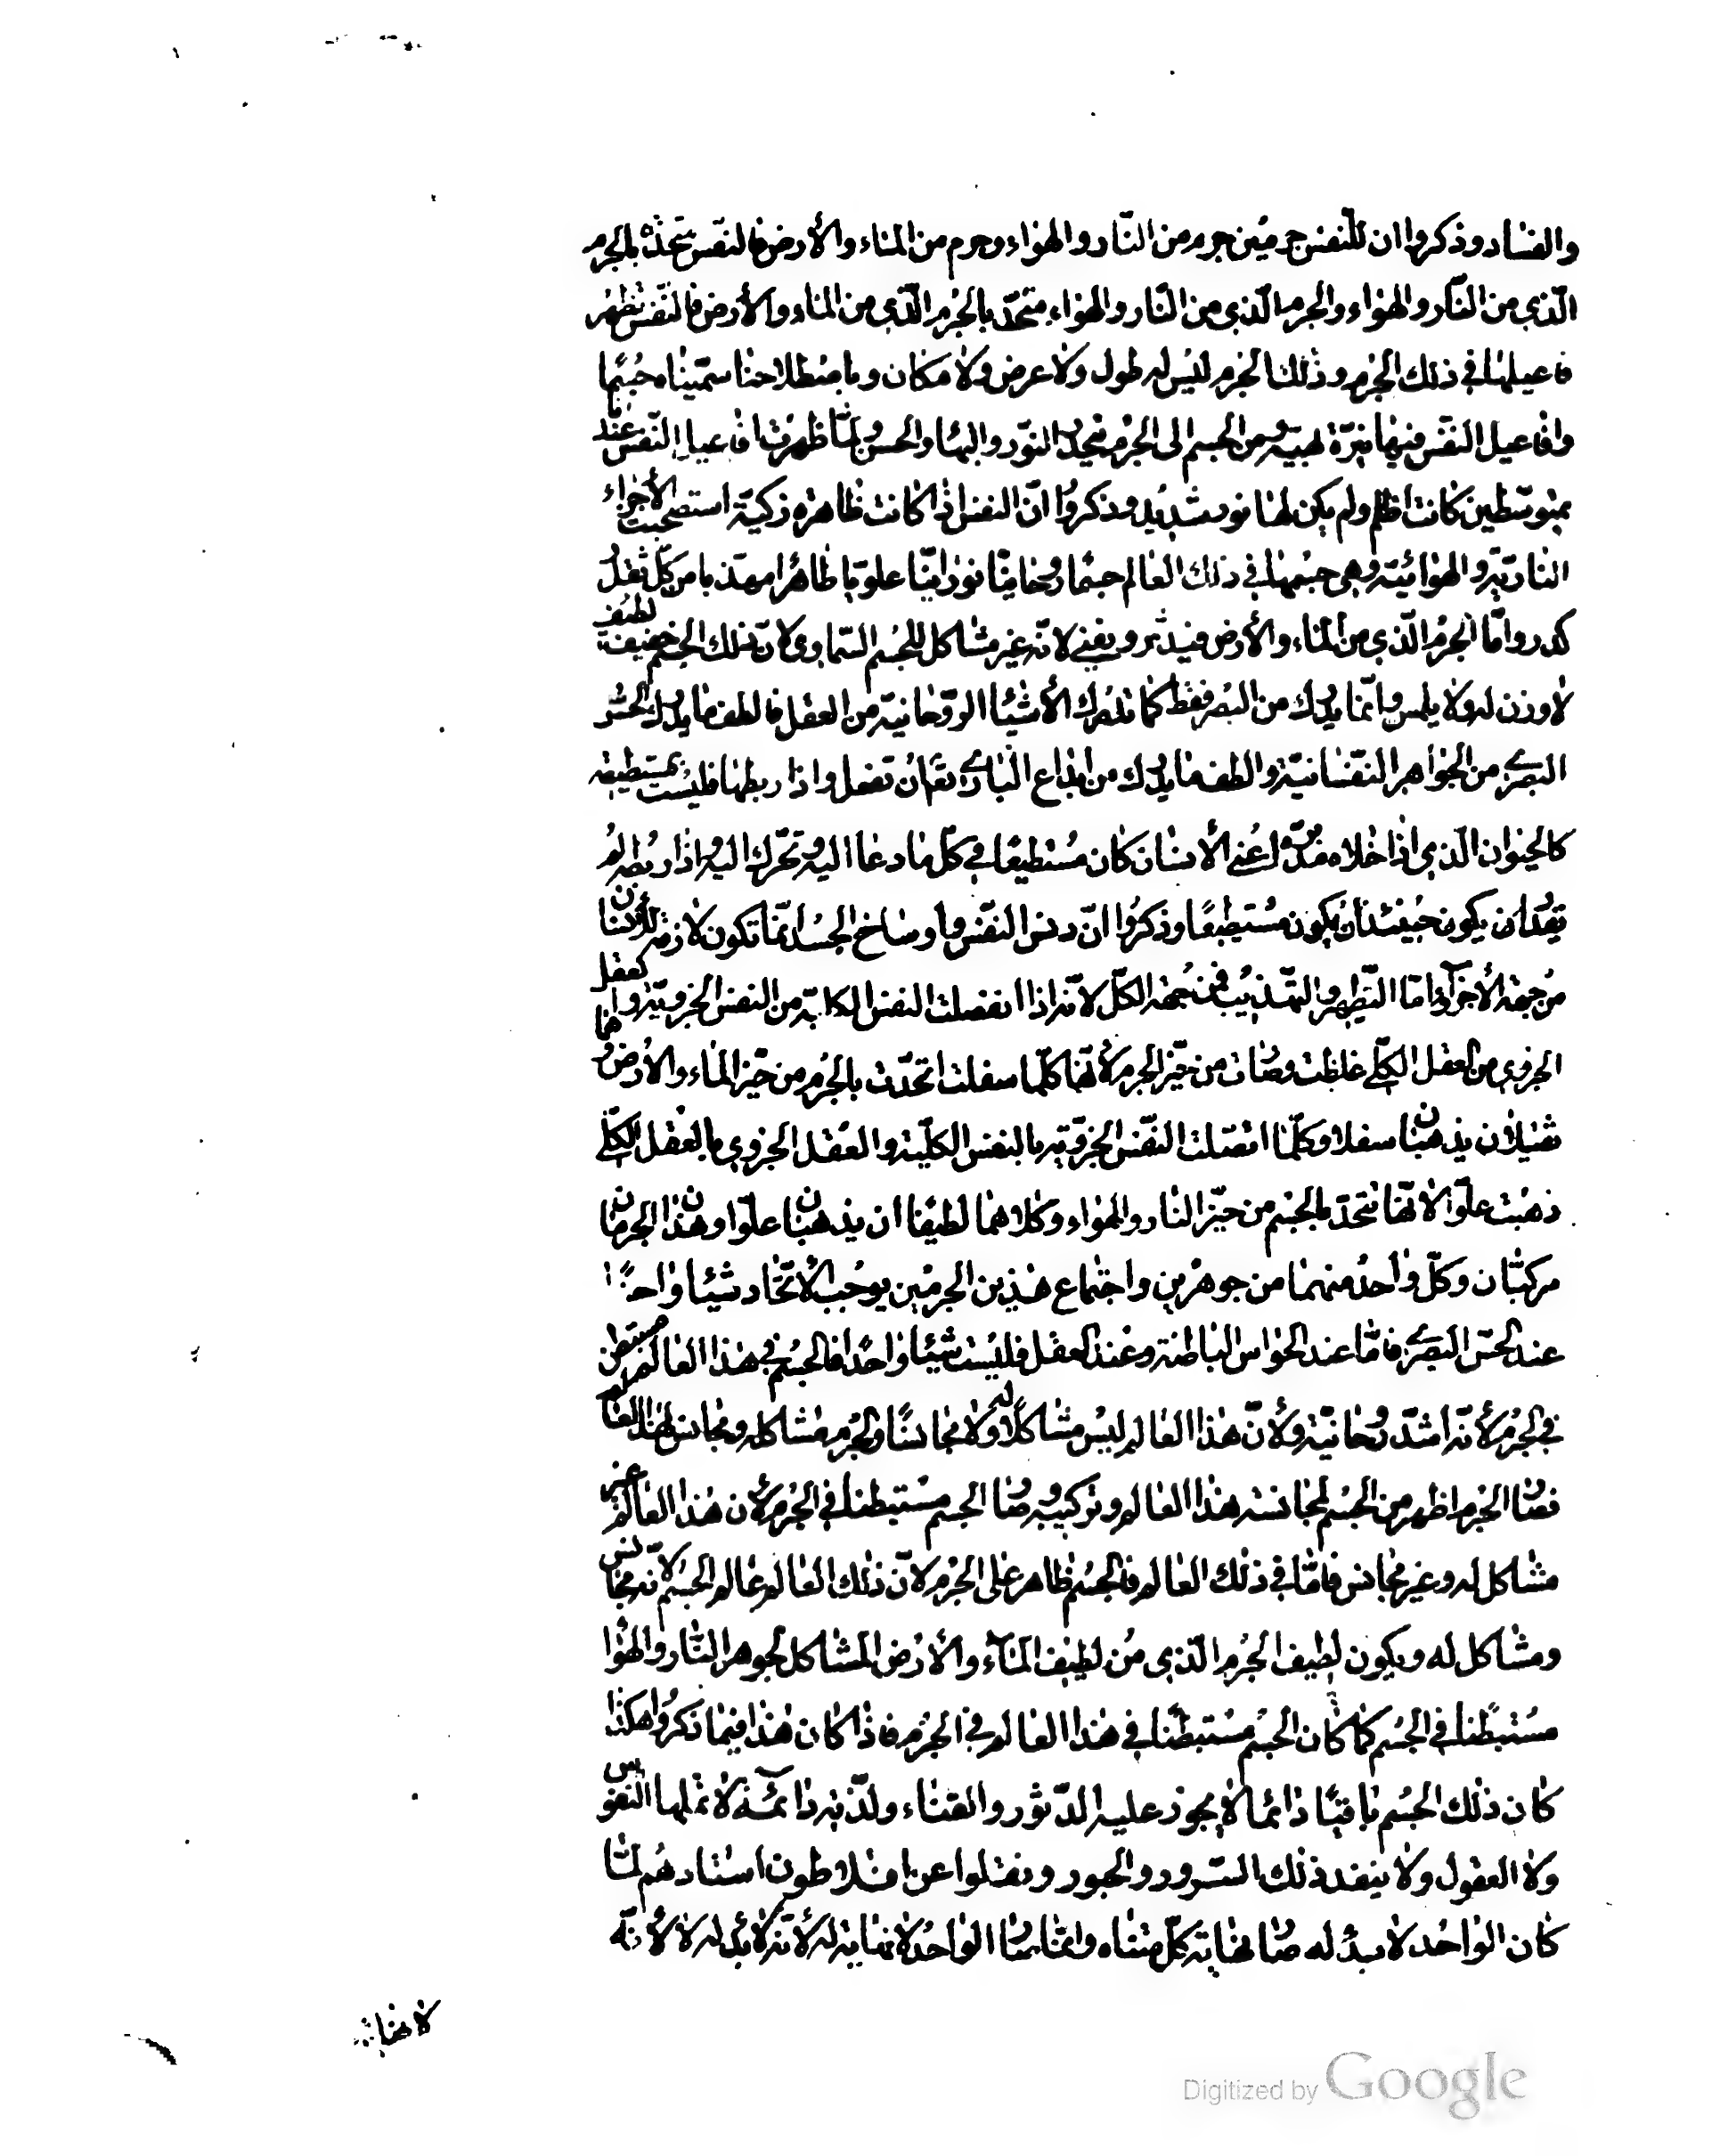 والفساد وذكروا ان للنفس جرمين جرم من النّار والهواء وجرم من الماء والأرض فالنفس متحدة بالجرم
الّذي من النّار والهواء والجرم الّذي من النّار والهواء متّحد بالجرم الّذي من الماء والأرض فالنّفس تظهر
فاعيلها في ذلك الجرم وذلك الجرم ليس له طول ولا عرض ولا مكان وباصطلاحنا سمّيناه جسما
وافاعيل النفس فيها نيّرة بهيّة ومن الجسم الى الجرم ينحدر النّور والبهاء والحسن ولمّا ظهرت افاعيل النّفس عندنا
بمتوسّطين كانت اظلم ولم يكن لها نور شديد وذكروا انّ النفس اذا كانت طاهرة زكيّة استصحبت الأجزاء
الناريّة والهوائيّة وهي جسمها في ذلك العالم جسما روحانيّا نورانيّا علويّا طاهرا مهذبا من كلّ ثقل
كدر وامّا الجرم الّذي من الماء والأرض فيدثر ويفنى لانّه غير مشاكل للجسم السّماوي لانّ ذلك الجسم خفيف لطيف
لا وزن له ولا يلمس وانّما يدرك من البصر فقط كما تدرك الأشياء الروّحانية من العقل فالطف ما يدرك الحسّ
البصري من الجواهر النّفسانيّة والطف ما يدرك من ابداع الباري تعالى تفعل واذا ربطها فليست بمستطيعة
كالحيوان الّذي اذا خلاه مدبّره اعني الأنسان كان مستطيعا في كلّ ما دعا اليه وتحرّك اليه واذا ربطه لم
يقدر ان يكون حينئذ ان يكون مستطيعا وذكروا انّ دنس النّفس واوساخ الجسد انّما تكون لازمة للأنسان
من جهة الأجزآء وامّا التّطهير والتهّذيب فمن جهة الكلّ لانّه اذا انفصلت النفس الكليّة من النفس الجزويّة والعقل
الجزوي من العقل الكلّي غلظت وصارت من حيّز الجرم لأنّها كلّما سفلت اتحّدت بالجرم من حيّز الماء والأرض وهما
ثقيلان يذهبان سفلا وكلّما اتصّلت النّفس الجزويّة بالنفس الكليّة والعقل الجزوي بالعقل الكلّي
ذهبت علوّا لانّها تتحّد بالجسم من حيّز النار والهواء وكلاهما لطيفان يذهبان علوّا وهذان الجرمان
مركبان وكلّ واحد منهما من جوهرين واجتماع هذين الجرمين يوجب الأتّحاد شيئا واحدا
عند الحسّ البصري فامّا عند الحواس الباطنة وعند العقل فليست شيئا واحدا فالجسم في هذا العالم مستبطن
في الجرم لأنّه اشدّ روحانيّة ولأنّ هذا العالم ليس مشاكلا له ولا مجانسا والجرم مشاكل ومجانس لهذا العالم
فصار الجرم اظهر من الجسم لمجانسته هذا العالم وتركيبه وصار الجسم مستبطنا في الجرم لأن هذا العالم غير
مشاكل له وغير مجانس فامّا في ذلك العالم فالجسم ظاهر على الجرم لانّ ذلك العالم عالم الجسم لانّه مجانس
ومشاكل له ويكون لطيف الجرم الّذي من لطيف المآء والأرض المشاكل لجوهر النّار والهوا
مستبطنا في الجسم كما كان الجسم مستبطنا في هذا العالم في الجرم فاذا كان هذا فيما ذكروا هكذا
كان ذلك الجسم باقيا دائما لا يجوز عليه الدّثور والفناء ولذّته دآئمة لا تملها النفوس
ولا العقول ولا ينفد ذلك السّرور والحبور ونقلوا عن افلاطون استادهم لمّا
كان الواحد لا بدؤ له صار نهاية كلّ متناه وانّما صار الواحد لا نهاية له لأنّه لا بدؤ له لا لأنّه
لا نهاية